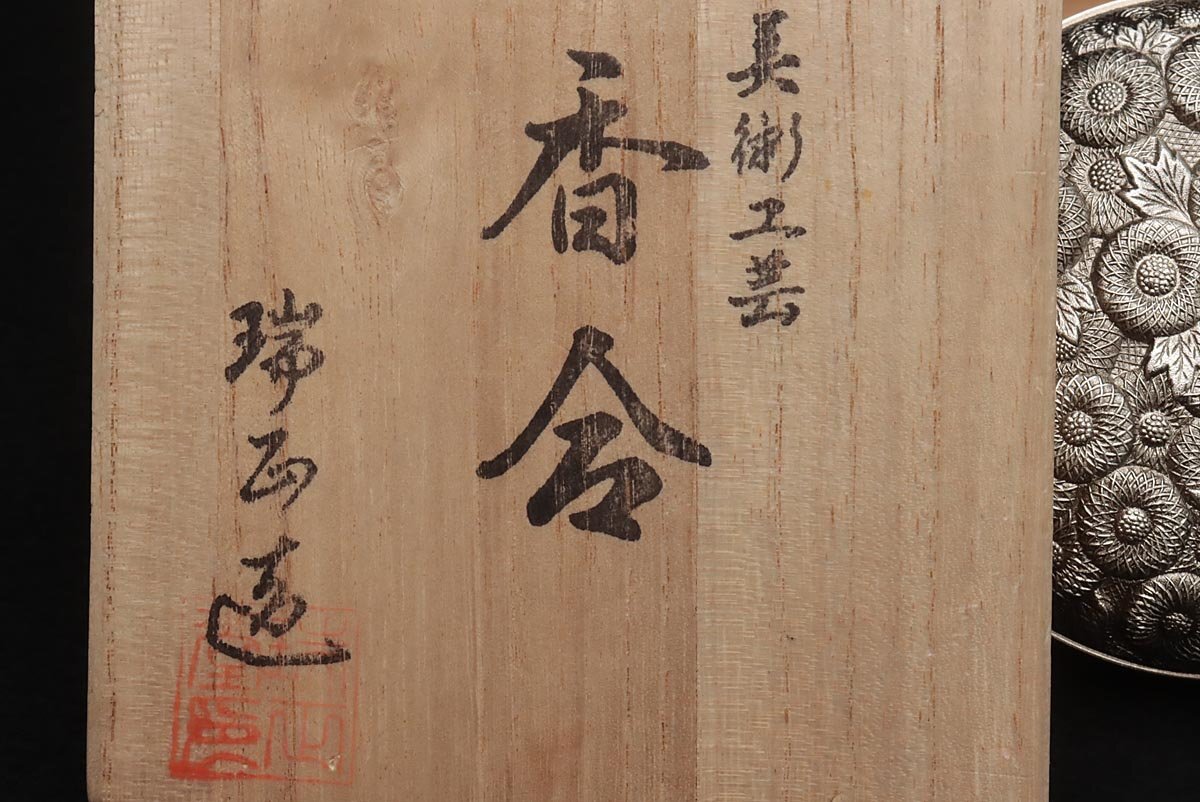 美術工芸
香合
瑞正造